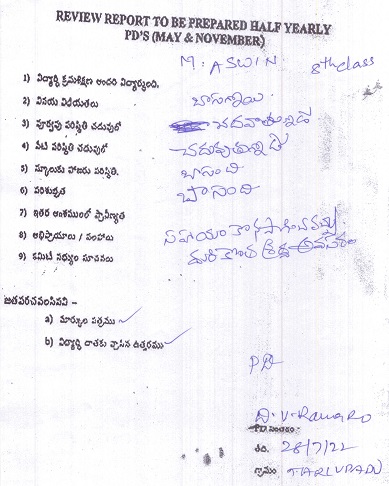 REVIEW REPORT TO BE PREPARED HALF YEARLY
PD'S (MAY & NOVEMBER)
M. ASWIN 8th class
1) విద్యార్థి క్రమశిక్షణ అందరి విద్యార్థులది.
2) వినయ విధేయతలు బాగున్నాయి.
3) పూర్వపు పరిస్థితి చదువులో చదువుతున్నాడే
4) నేటి పరిస్థితి చదువులో చదువుతున్నాడు
5) స్కూలుకు హాజరు పరిస్థితి. బాగుంది
6) పరిశుభ్రత బాగుంది
7) ఇతర అంశములలో ప్రావీణ్యత
8) అభిప్రాయాలు / సలహాలు సహాయం కొనసాగించవచ్చు
9) కమిటీ సభ్యుల సూచనలు మరికొంత శ్రద్ధ అవసరం
జతపరచవలసినవి :-
a) మార్కుల పత్రము
b) విద్యార్థి దాతకు వ్రాసిన ఉత్తరము
PD
D.V. Ramarao
PD సంతకం
తేది. 28/7/22
గ్రామం TARLUPADU